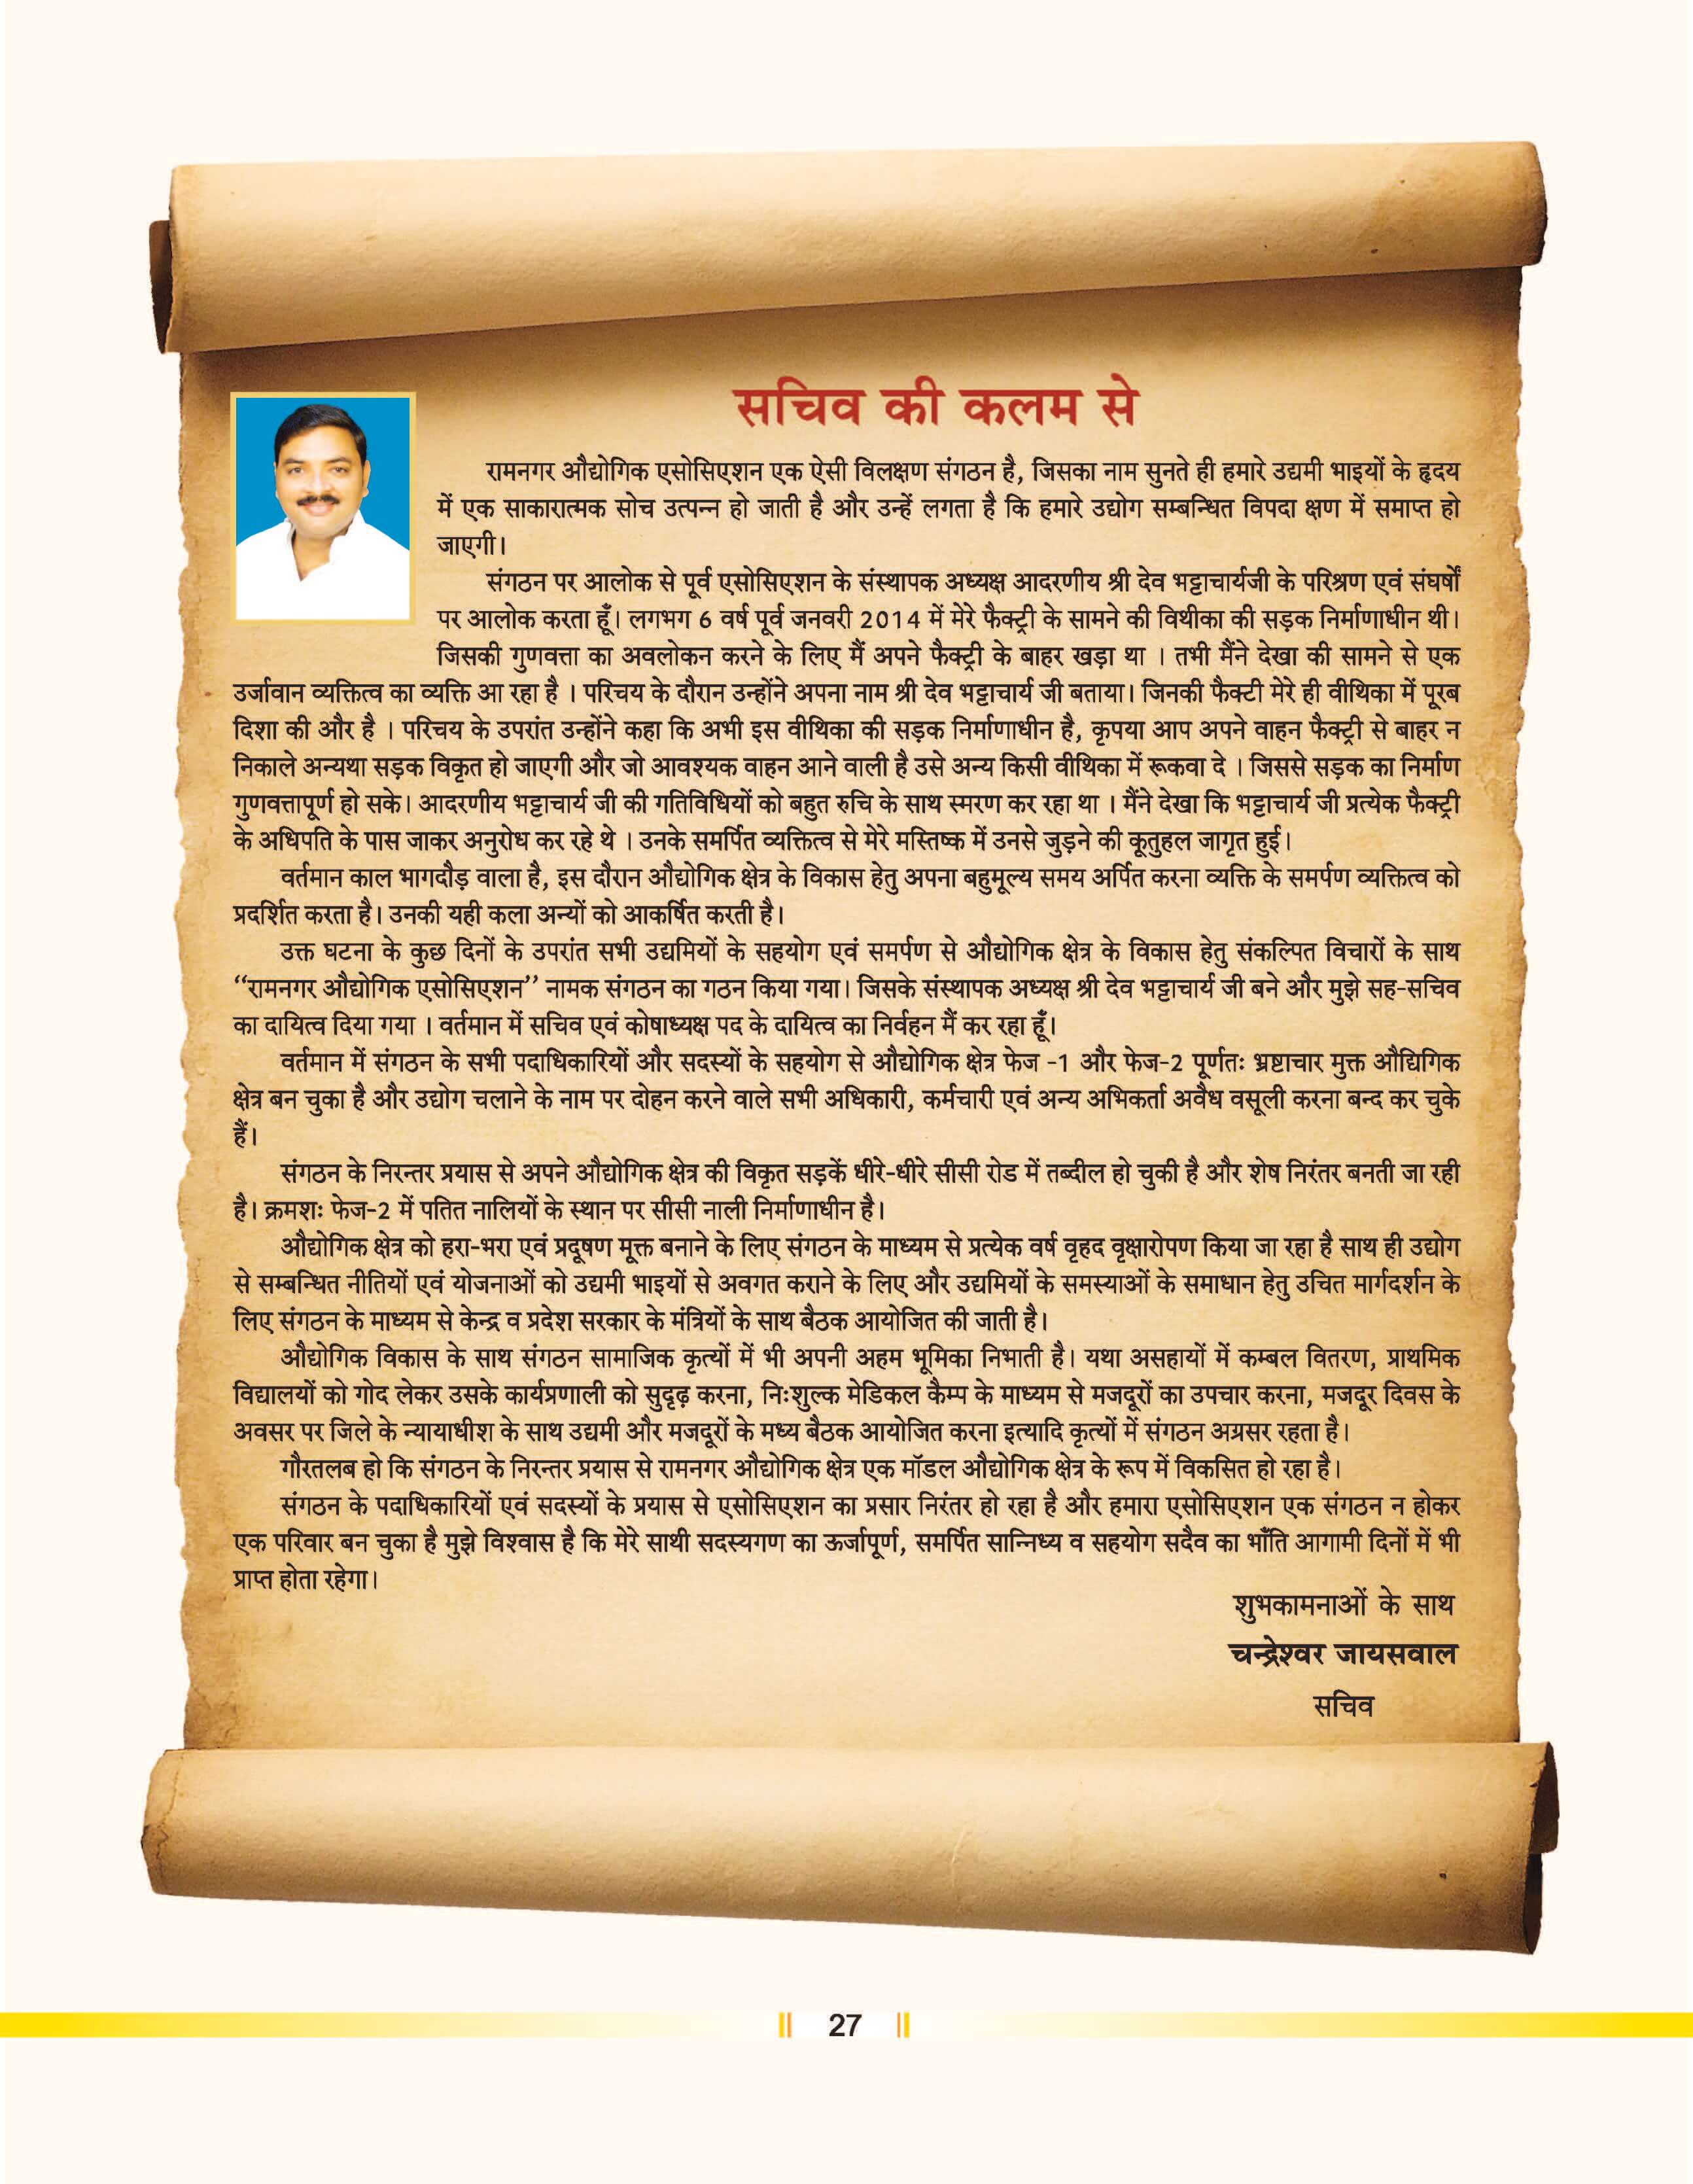 सचिव की कलम से
रामनगर औद्योगिक एसोसिएशन एक ऐसी विलक्षण संगठन है, जिसका नाम सुनते ही हमारे उद्यमी भाइयों के हृदय
में एक साकारात्मक सोच उत्पन्न हो जाती है और उन्हें लगता है कि हमारे उद्योग सम्बन्धित विपदा क्षण में समाप्त हो
जाएगी।
संगठन पर आलोक से पूर्व एसोसिएशन के संस्थापक अध्यक्ष आदरणीय श्री देव भट्टाचार्यजी के परिश्रण एवं संघर्षों
पर आलोक करता हूँ। लगभग 6 वर्ष पूर्व जनवरी 2014 में मेरे फैक्ट्री के सामने की विथीका की सड़क निर्माणाधीन थी।
जिसकी गुणवत्ता का अवलोकन करने के लिए मैं अपने फैक्ट्री के बाहर खड़ा था । तभी मैंने देखा की सामने से एक
उर्जावान व्यक्तित्व का व्यक्ति आ रहा है । परिचय के दौरान उन्होंने अपना नाम श्री देव भट्टाचार्य जी बताया। जिनकी फैक्टी मेरे ही वीथिका में पूरब
दिशा की और है । परिचय के उपरांत उन्होंने कहा कि अभी इस वीथिका की सड़क निर्माणाधीन है, कृपया आप अपने वाहन फैक्ट्री से बाहर न
निकाले अन्यथा सड़क विकृत हो जाएगी और जो आवश्यक वाहन आने वाली है उसे अन्य किसी वीथिका में रूकवा दे । जिससे सड़क का निर्माण
गुणवत्तापूर्ण हो सके। आदरणीय भट्टाचार्य जी की गतिविधियों को बहुत रुचि के साथ स्मरण कर रहा था । मैंने देखा कि भट्टाचार्य जी प्रत्येक फैक्ट्री
के अधिपति के पास जाकर अनुरोध कर रहे थे । उनके समर्पित व्यक्तित्व से मेरे मस्तिष्क में उनसे जुड़ने की कूतुहल जागृत हुई।
वर्तमान काल भागदौड़ वाला है, इस दौरान औद्योगिक क्षेत्र के विकास हेतु अपना बहुमूल्य समय अर्पित करना व्यक्ति के समर्पण व्यक्तित्व को
प्रदर्शित करता है। उनकी यही कला अन्यों को आकर्षित करती है।
उक्त घटना के कुछ दिनों के उपरांत सभी उद्यमियों के सहयोग एवं समर्पण से औद्योगिक क्षेत्र के विकास हेतु संकल्पित विचारों के साथ
“रामनगर औद्योगिक एसोसिएशन” नामक संगठन का गठन किया गया। जिसके संस्थापक अध्यक्ष श्री देव भट्टाचार्य जी बने और मुझे सह-सचिव
का दायित्व दिया गया । वर्तमान में सचिव एवं कोषाध्यक्ष पद के दायित्व का निर्वहन मैं कर रहा हूँ।
वर्तमान में संगठन के सभी पदाधिकारियों और सदस्यों के सहयोग से औद्योगिक क्षेत्र फेज -1 और फेज-2 पूर्णतः भ्रष्टाचार मुक्त औद्यिगिक
क्षेत्र बन चुका है और उद्योग चलाने के नाम पर दोहन करने वाले सभी अधिकारी, कर्मचारी एवं अन्य अभिकर्ता अवैध वसूली करना बन्द कर चुके
हैं।
संगठन के निरन्तर प्रयास से अपने औद्योगिक क्षेत्र की विकृत सड़कें धीरे-धीरे सीसी रोड में तब्दील हो चुकी है और शेष निरंतर बनती जा रही
है। क्रमशः फेज-2 में पतित नालियों के स्थान पर सीसी नाली निर्माणाधीन है।
औद्योगिक क्षेत्र को हरा-भरा एवं प्रदूषण मूक्त बनाने के लिए संगठन के माध्यम से प्रत्येक वर्ष वृहद वृक्षारोपण किया जा रहा है साथ ही उद्योग
से सम्बन्धित नीतियों एवं योजनाओं को उद्यमी भाइयों से अवगत कराने के लिए और उद्यमियों के समस्याओं के समाधान हेतु उचित मार्गदर्शन के
लिए संगठन के माध्यम से केन्द्र व प्रदेश सरकार के मंत्रियों के साथ बैठक आयोजित की जाती है।
औद्योगिक विकास के साथ संगठन सामाजिक कृत्यों में भी अपनी अहम भूमिका निभाती है। यथा असहायों में कम्बल वितरण, प्राथमिक
विद्यालयों को गोद लेकर उसके कार्यप्रणाली को सुदृढ़ करना, निःशुल्क मेडिकल कैम्प के माध्यम से मजदूरों का उपचार करना, मजदूर दिवस के
अवसर पर जिले के न्यायाधीश के साथ उद्यमी और मजदूरों के मध्य बैठक आयोजित करना इत्यादि कृत्यों में संगठन अग्रसर रहता है।
गौरतलब हो कि संगठन के निरन्तर प्रयास से रामनगर औद्योगिक क्षेत्र एक मॉडल औद्योगिक क्षेत्र के रूप में विकसित हो रहा है।
संगठन के पदाधिकारियों एवं सदस्यों के प्रयास से एसोसिएशन का प्रसार निरंतर हो रहा है और हमारा एसोसिएशन एक संगठन न होकर
एक परिवार बन चुका है मुझे विश्वास है कि मेरे साथी सदस्यगण का ऊर्जापूर्ण, समर्पित सान्निध्य व सहयोग सदैव का भाँति आगामी दिनों में भी
प्राप्त होता रहेगा।
शुभकामनाओं के साथ
चन्द्रेश्वर जायसवाल
सचिव
27